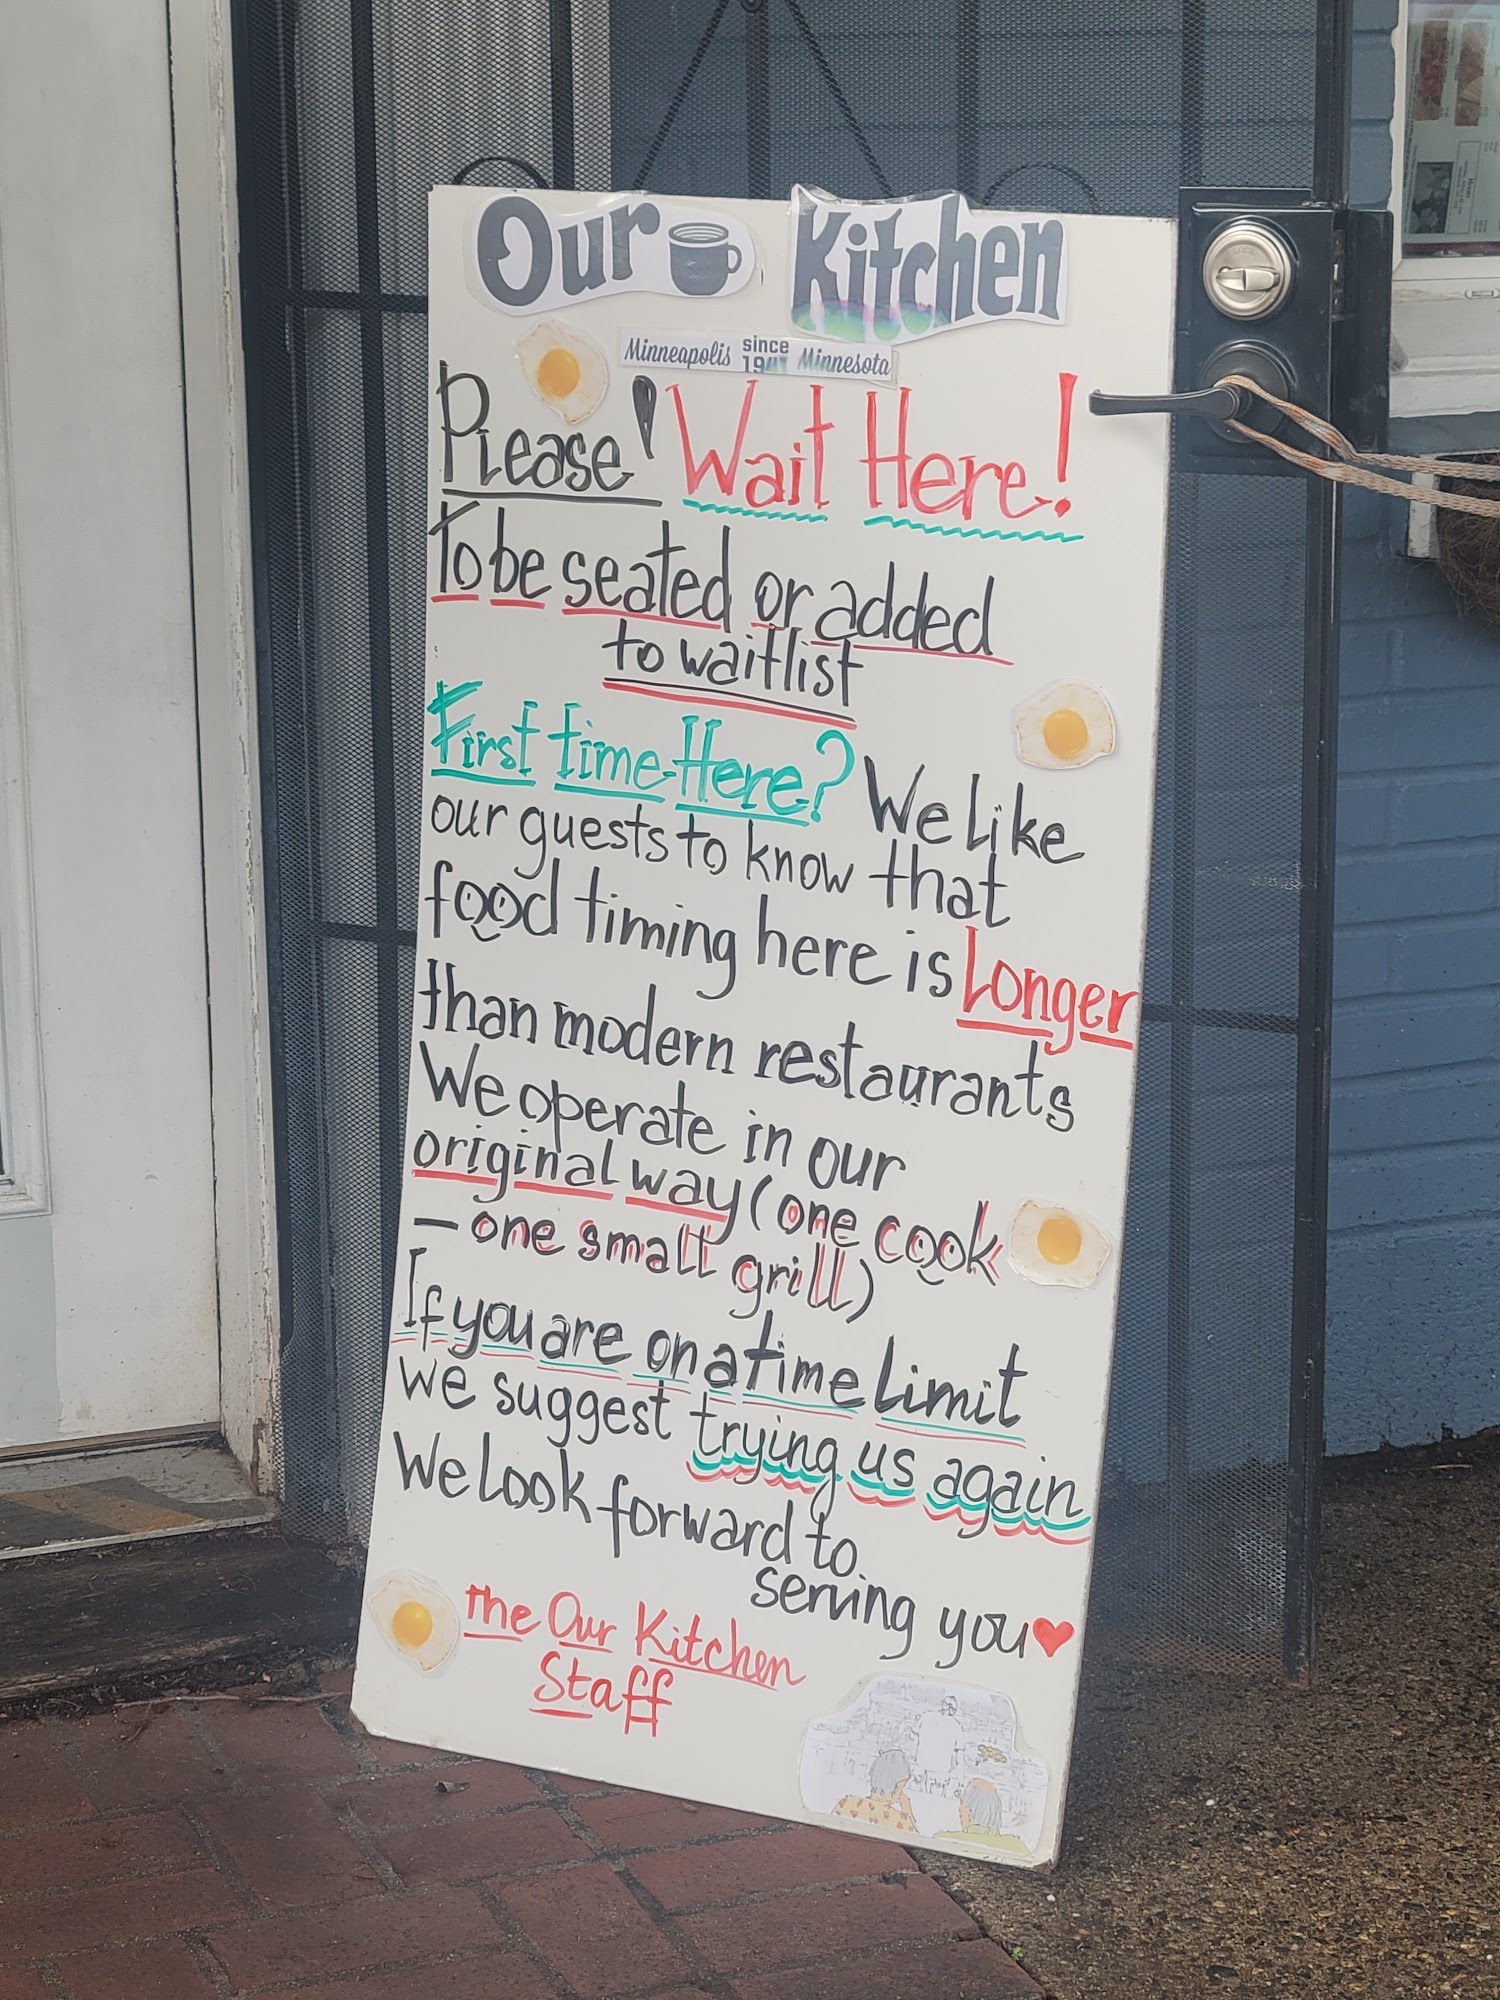 Our Kitchen
Minneapolis since Minnesota
Please! Wait Here!
To be seated or added
to waitlist
First time Here? We like
our guests to know that
food timing here is Longer
than modern restaurants
We operate in our
original way (one cook
– one small grill)
If you are on a time limit
we suggest trying us again
We look forward to
serving you
the Our Kitchen
Staff